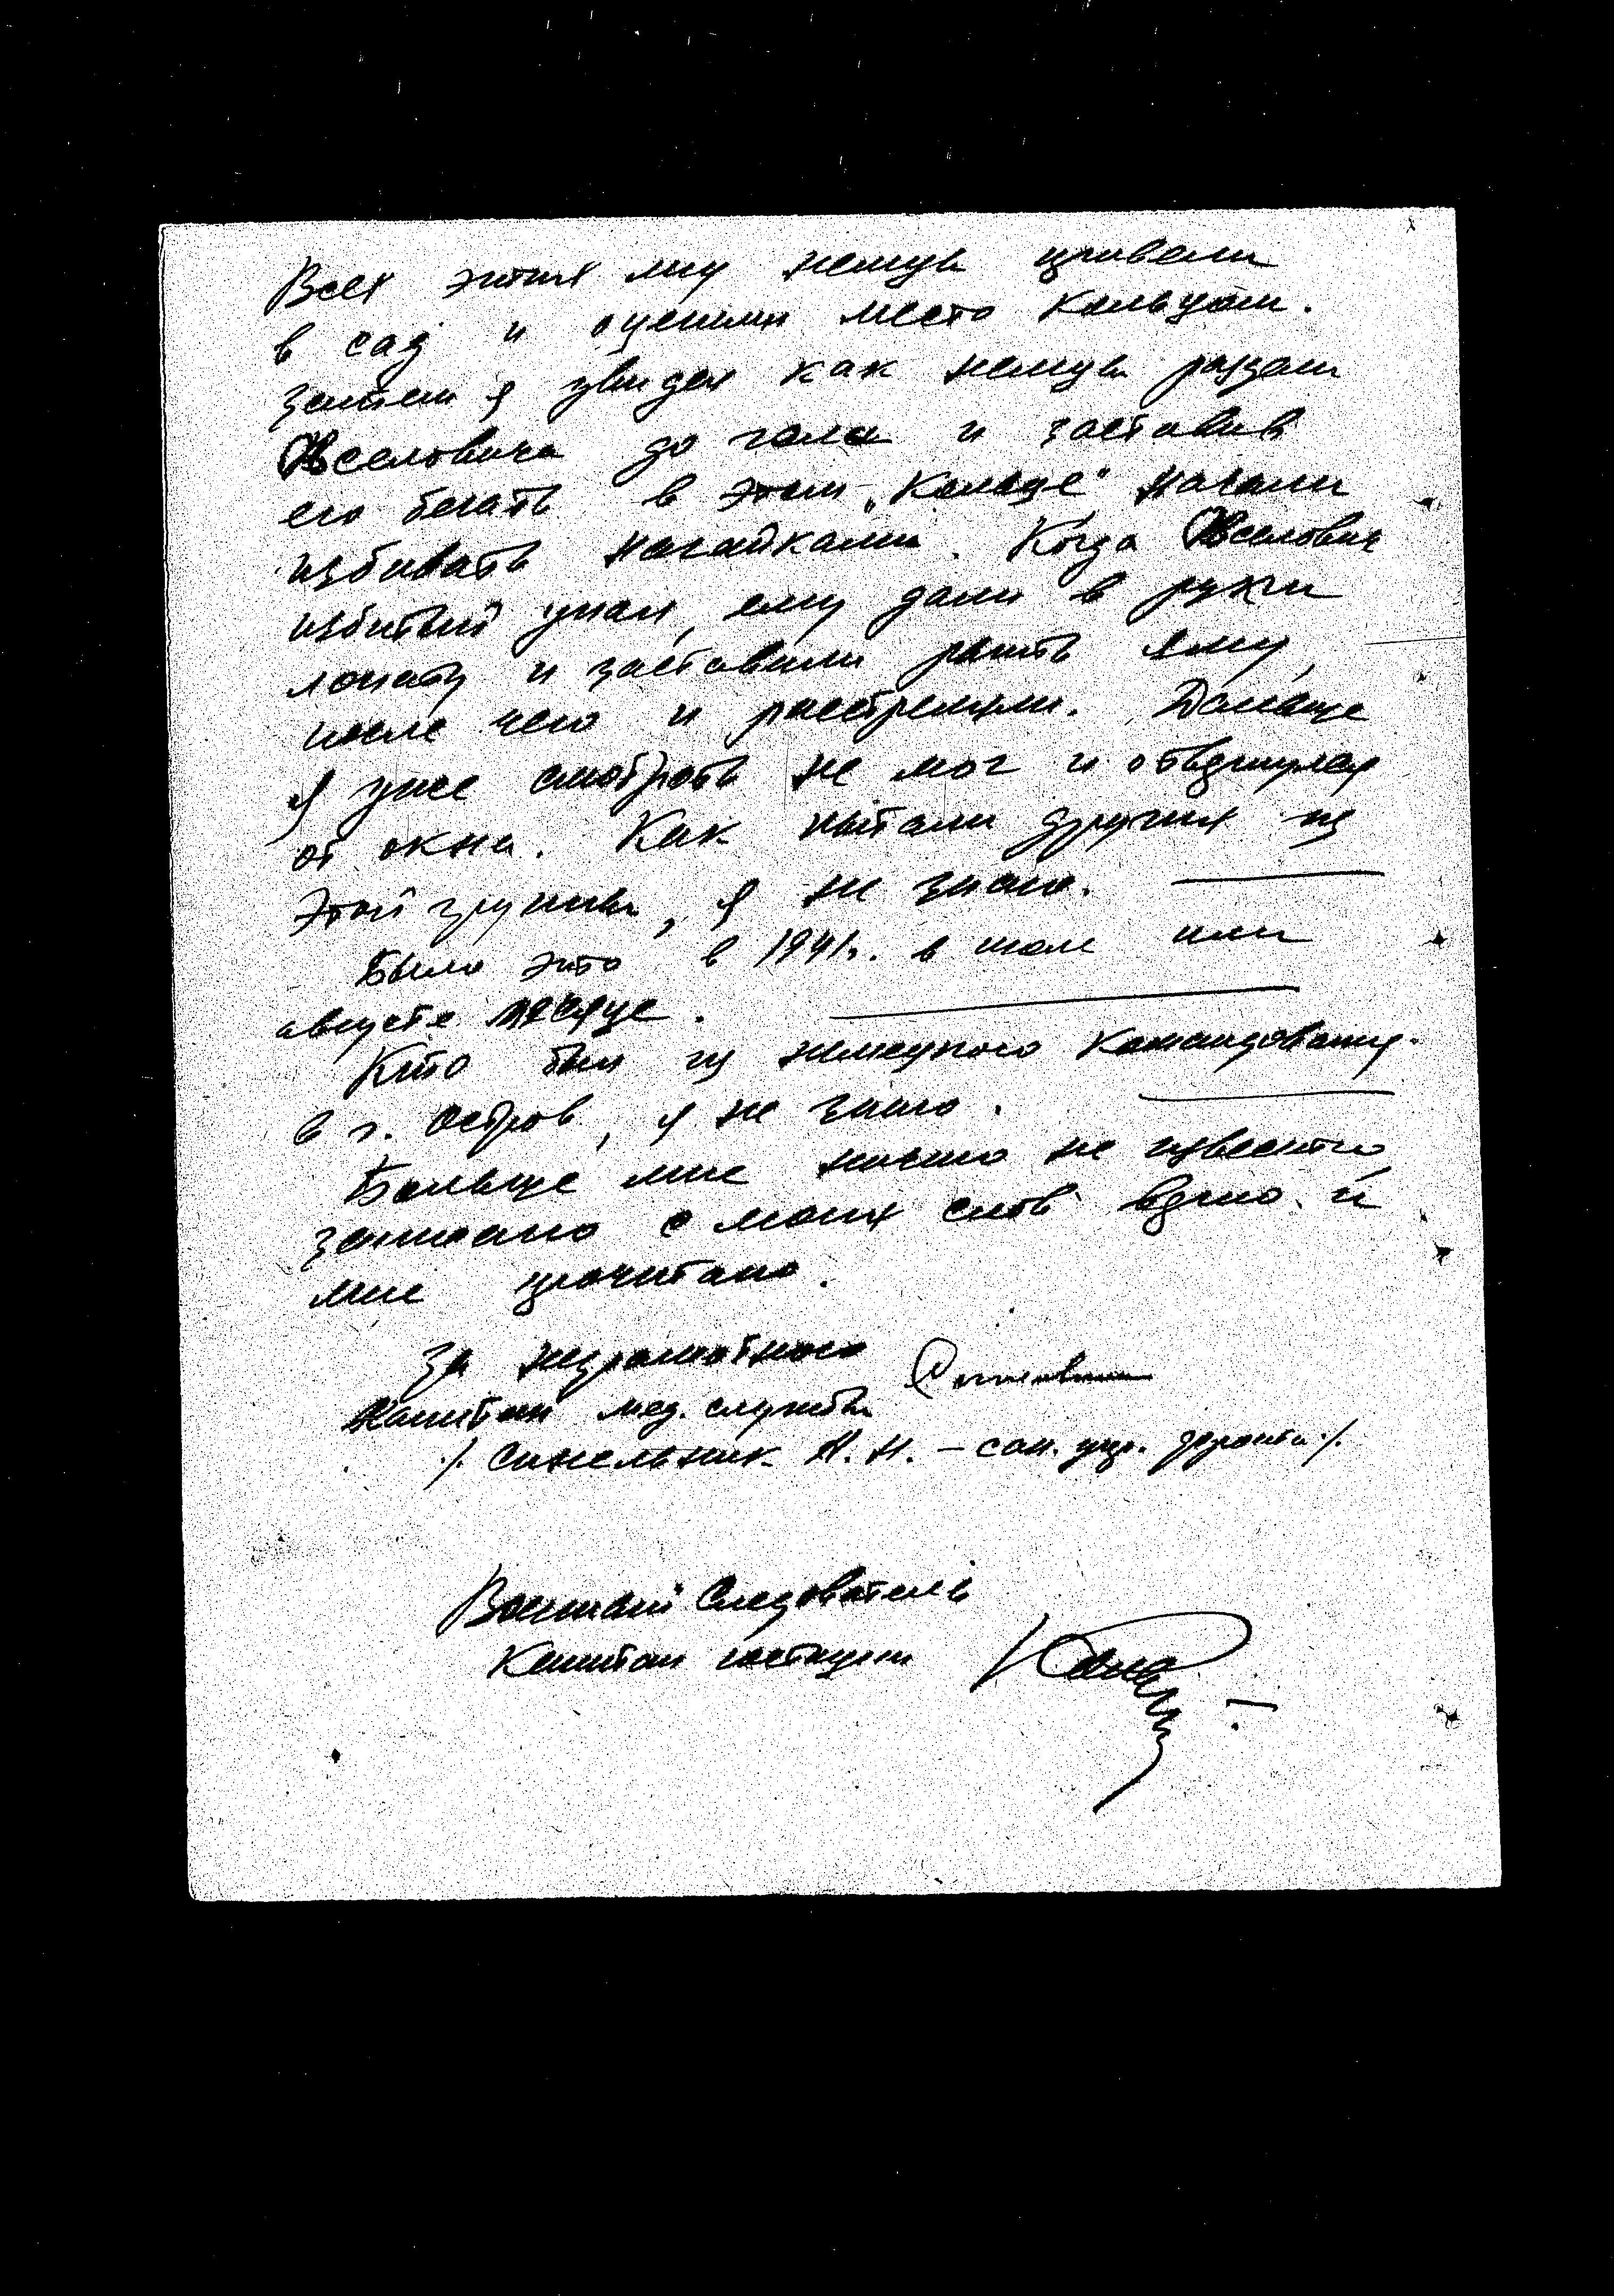 Всех этих лиц немцы привели
в сад и оцепили место кольцом.
Затем я увидел как немцы раздели
до гола и заставив
его бегать в этом „Кольце" начали
избивать нагайками. Когда
избитый упал, ему дали в руки
лопату и заставили рыть яму,
после чего и расстреляли. Дальше
я уже смотреть не мог и отвернулся
от окна. Как пытали других из
этой группы, я не знаю.
Было это в 1941г. в июле или
августе месяце.
Кто был из немецкого командования
в г. Остров, я не знаю.
Больше мне ничего не известно
записано с моих слов верно и
мне прочитано.
За неграмотного
Капитан мед. службы
/. Синельник Н.Н. – сан. упр. фронта ./.
Военный Следователь
Капитан юстиции